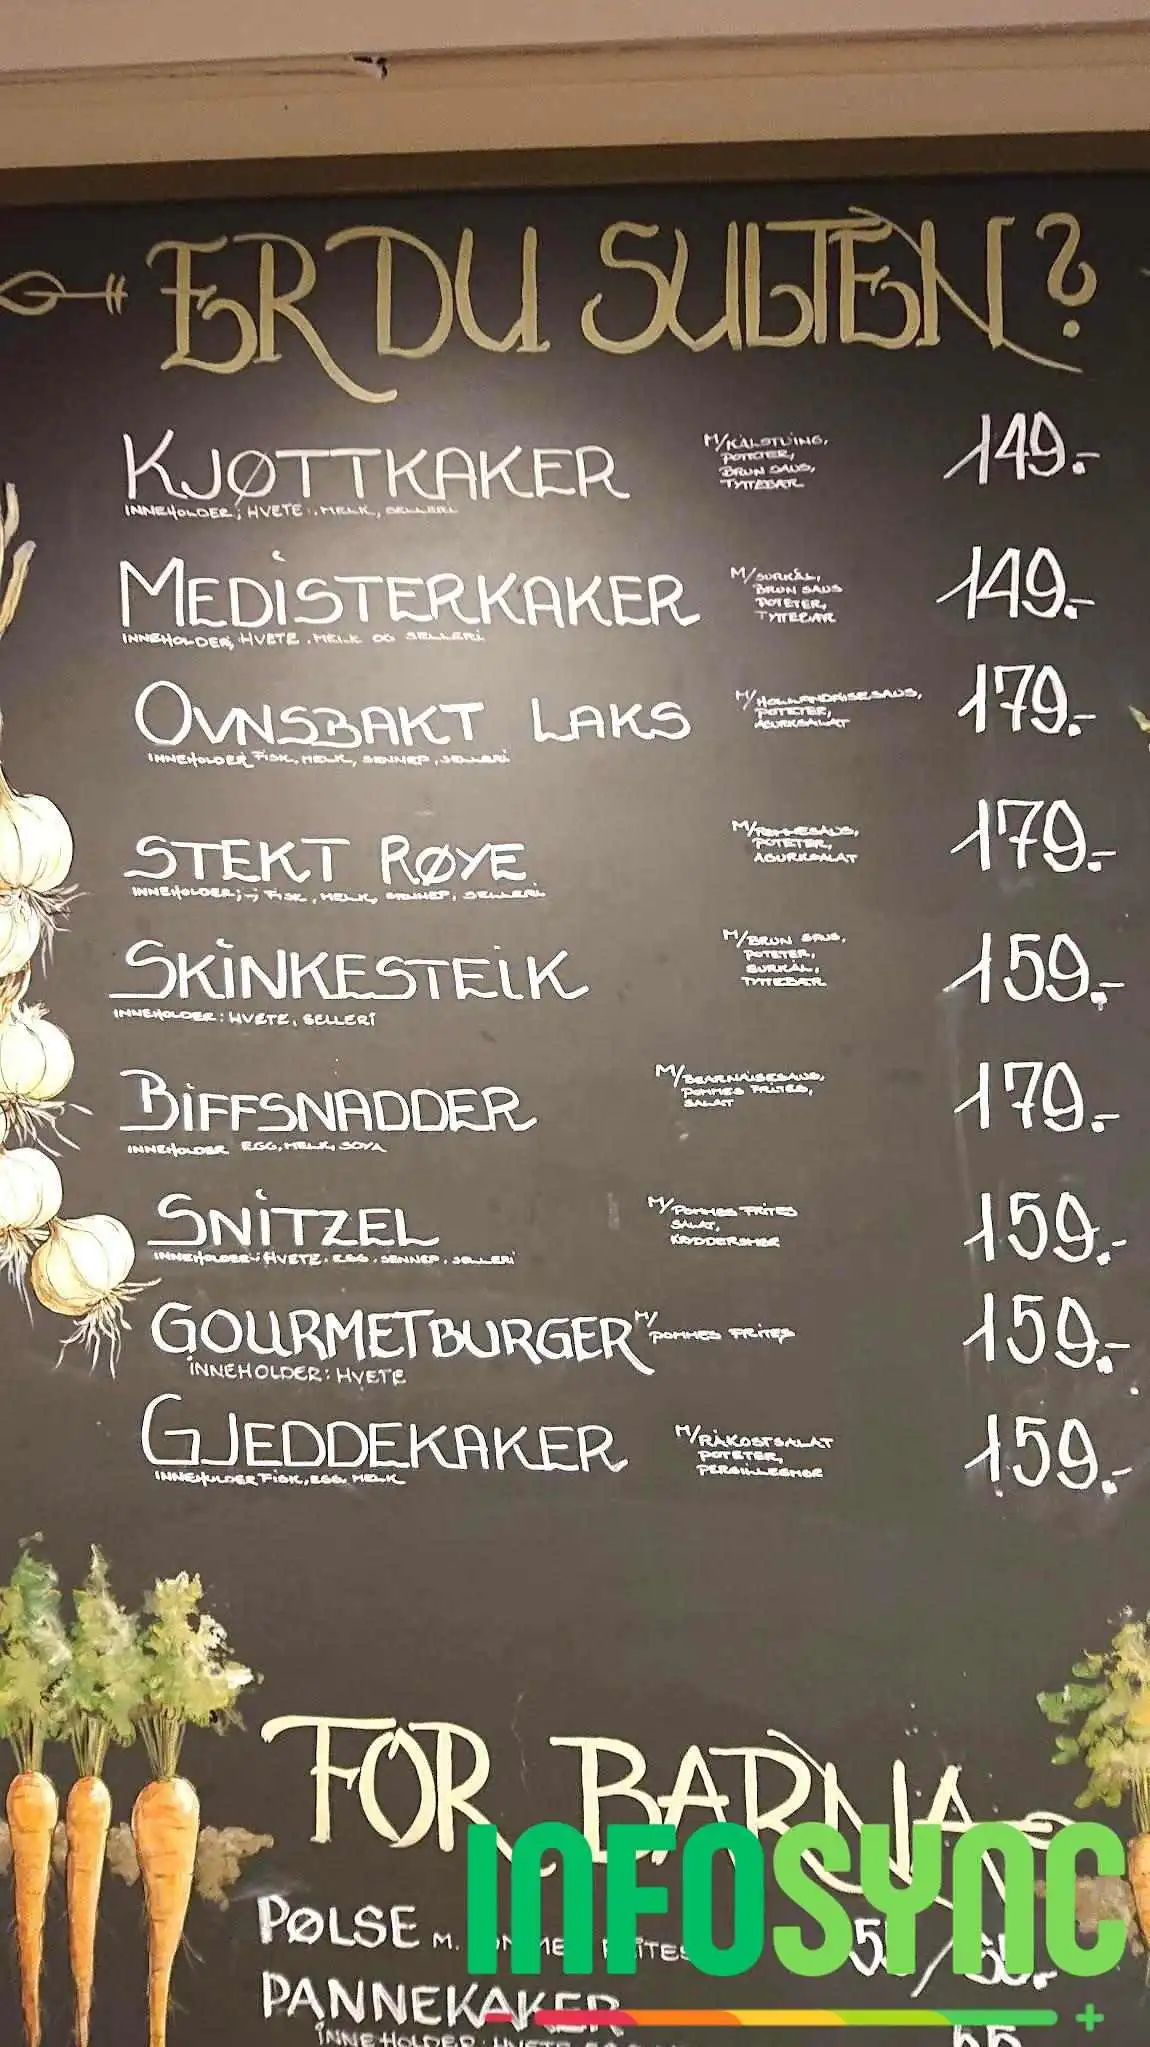 ER DU SULTEN?
KJØTTKAKER M/KÅLSTUING, POTETER, BRUN SAUS, TYTTEBÆR 149.-
INNEHOLDER; HVETE, MELK, SELLERI
MEDISTERKAKER M/SURKÅL, BRUN SAUS POTETER, TYTTEBÆR 149.-
INNEHOLDER; HVETE, MELK OG SELLERI
OVNSBAKT LAKS M/HOLLANDAISESAUS, POTETER, AGURKSALAT 179.-
INNEHOLDER FISK, MELK, SENNEP, SELLERI
STEKT RØYE M/RØMMESAUS, POTETER, AGURKSALAT 179.-
INNEHOLDER; FISK, MELK, SENNEP, SELLERI
SKINKESTEIK M/BRUN SAUS, POTETER, SURKÅL, TYTTEBÆR 159.-
INNEHOLDER: HVETE, SELLERI
BIFFSNADDER M/BEARNAISESAUS, POMMES FRITES, SALAT 179.-
INNEHOLDER EGG, MELK, SOYA
SNITZEL M/POMMES FRITES SALAT, KRYDDERSMØR 159.-
INNEHOLDER: HVETE, EGG, SENNEP, SELLERI
GOURMETBURGER M/POMMES FRITES 159.-
INNEHOLDER: HVETE
GJEDDEKAKER M/RÅKOSTSALAT POTETER, PERSILLESMØR 159.-
INNEHOLDER FISK, EGG, MELK
FOR BARNA
PØLSE M.
PANNEKAKER
INNEHOLDER: HVETE
INFOSYNC